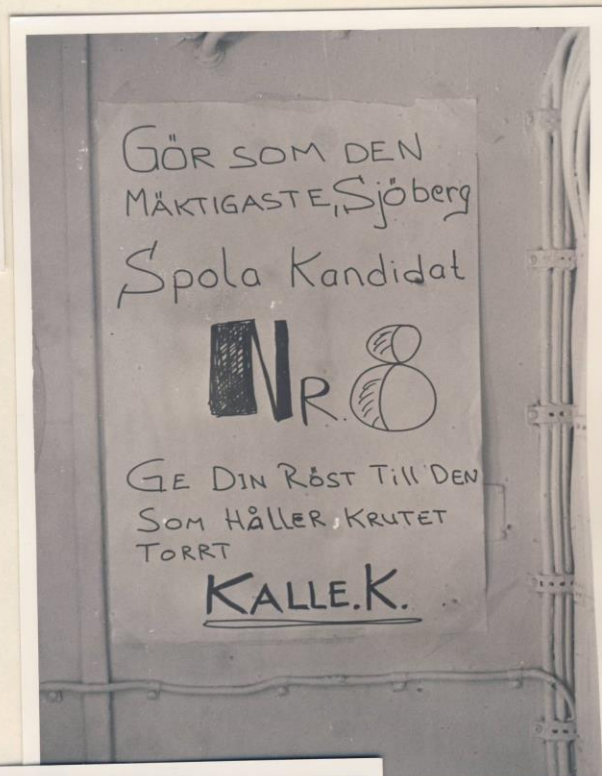 GÖR SOM DEN
MÄKTIGASTE, Sjöberg
Spola Kandidat
NR. 8
GE DIN RÖST Till DEN
SOM HÅLLER KRUTET
TORRT
KALLE.K.